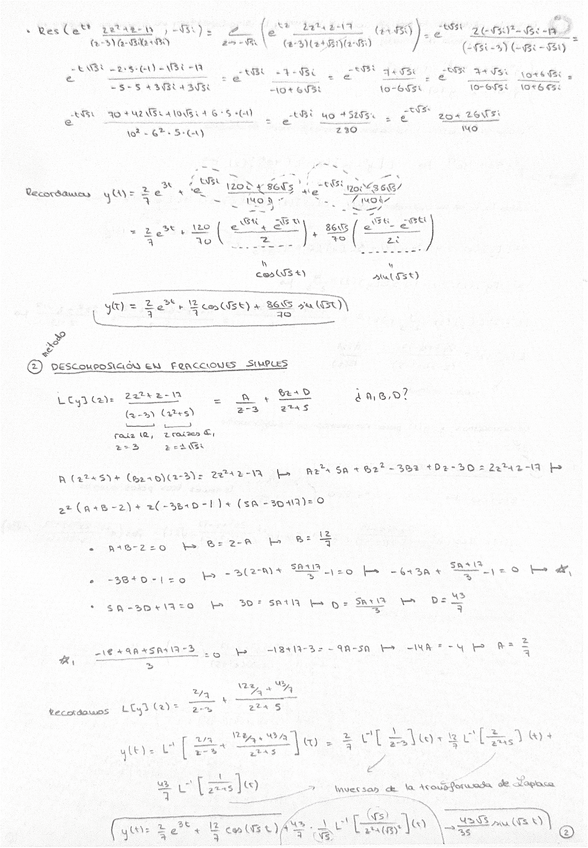 • Res(e^{tz} (2z²+z-17)/((z-3)(z-√5i)(z+√5i)), -√5i) = lim_{z→-√5i} (e^{tz} (2z²+z-17)/((z-3)(z+√5i)(z-√5i)) (z+√5i)) = e^{-t√5i} (2(-√5i)²-√5i-17)/((-√5i-3)(-√5i-√5i)) =
e^{-t√5i} (-2·5·(-1)-√5i-17)/(-5-5+3√5i+3√5i) = e^{-t√5i} (-7-√5i)/(-10+6√5i) = e^{-t√5i} (7+√5i)/(10-6√5i) = e^{-t√5i} (7+√5i)/(10-6√5i) (10+6√5i)/(10+6√5i) =
e^{-t√5i} (70+42√5i+10√5i+6·5·(-1))/(10²-6²·5·(-1)) = e^{-t√5i} (40+52√5i)/280 = e^{-t√5i} (20+26√5i)/140
Recordamos y(t) = 2/7 e^{3t} + e^{t√5i} (120i+86√5)/140i + e^{-t√5i} (120i-86√5)/140i
= 2/7 e^{3t} + 120/70 ((e^{√5ti}+e^{-√5ti})/2) + 86√5/70 ((e^{√5ti}-e^{-√5ti})/2i)
cos(√5t) sin(√5t)
y(t) = 2/7 e^{3t} + 12/7 cos(√5t) + 86√5/70 sin(√5t)
método
② DESCOMPOSICIÓN EN FRACCIONES SIMPLES
L[y](z) = (2z²+z-17)/((z-3)(z²+5)) = A/(z-3) + (Bz+D)/(z²+5) ¿A, B, D?
raíz ℝ, 2 raíces ℂ,
z=3 z=±√5i
A(z²+5)+(Bz+D)(z-3) = 2z²+z-17 ↦ Az²+5A+Bz²-3Bz+Dz-3D = 2z²+z-17 ↦
z²(A+B-2)+z(-3B+D-1)+(5A-3D+17)=0
• A+B-2=0 ↦ B=2-A ↦ B=12/7
• -3B+D-1=0 ↦ -3(2-A)+(5A+17)/3-1=0 ↦ -6+3A+(5A+17)/3-1=0 ↦ ☆₁
• 5A-3D+17=0 ↦ 3D=5A+17 ↦ D=(5A+17)/3 ↦ D=43/7
☆₁ (-18+9A+5A+17-3)/3=0 ↦ -18+17-3=-9A-5A ↦ -14A=-4 ↦ A=2/7
Recordamos L[y](z) = (2/7)/(z-3) + (12z/7+43/7)/(z²+5)
y(t) = L⁻¹[(2/7)/(z-3) + (12z/7+43/7)/(z²+5)](t) = 2/7 L⁻¹[1/(z-3)](t) + 12/7 L⁻¹[z/(z²+5)](t) +
43/7 L⁻¹[1/(z²+5)](t) → Inversas de la transformada de Laplace
y(t) = 2/7 e^{3t} + 12/7 cos(√5t) + 43/7 · 1/√5 L⁻¹[(√5)/(z²+(√5)²)](t) → 43√5/35 sin(√5t) ②